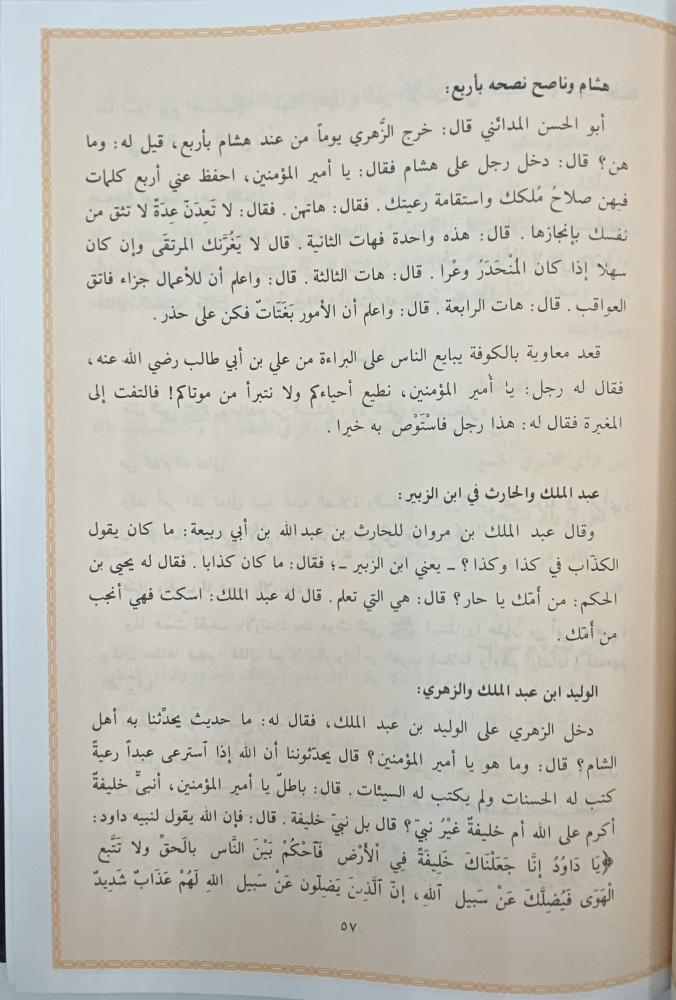 هشام وناصح نصحه بأربع:
أبو الحسن المدائني قال: خرج الزَّهري يوماً من عند هشام بأربع، قيل له: وما
هن؟ قال: دخل رجل على هشام فقال: يا أمير المؤمنين، احفظ عني أربع كلمات
فيهن صلاحُ مُلكك واستقامة رعيتك. فقال: هاتهن. فقال: لا تَعِدَنّ عِدَةً لا تثق من
نفسك بإنجازها. قال: هذه واحدة فهات الثانية. قال لا يَغُرَّنك المرتقَى وإن كان
سهلا إذا كان المُنْحَدَرُ وعْرا. قال: هات الثالثة. قال: واعلم أن للأعمال جزاء فاتق
العواقب. قال: هات الرابعة. قال: واعلم أن الأمور بَغَتَاتٌ فكن على حذر.
قعد معاوية بالكوفة يبايع الناس على البراءة من علي بن أبي طالب رضي الله عنه،
فقال له رجل: يا أمير المؤمنين، نطيع أحياءكم ولا نتبرأ من موتاكم! فالتفت إلى
المغيرة فقال له: هذا رجل فاسْتَوْص به خيرا.
عبد الملك والحارث في ابن الزبير:
وقال عبد الملك بن مروان للحارث بن عبدالله بن أبي ربيعة: ما كان يقول
الكذّاب في كذا وكذا؟ ـ يعني ابن الزبير ـ؛ فقال: ما كان كذابا. فقال له يحيى بن
الحكم: من أُمّك يا حار؟ قال: هي التي تعلم. قال له عبد الملك: اسكت فهي أنجب
من أمّك.
الوليد ابن عبد الملك والزهري:
دخل الزهري على الوليد بن عبد الملك، فقال له: ما حديث يحدِّثنا به أهل
الشام؟ قال: وما هو يا أمير المؤمنين؟ قال يحدّثوننا أن الله إذا ٱسترعى عبداً رعيةً
كتب له الحسنات ولم يكتب له السيئات. قال: باطلٌ يا أمير المؤمنين، أنبيٌّ خليفةٌ
أكرم على الله أم خليفةٌ غيْرُ نبيّ؟ قال بل نبيّ خليفة. قال: فإن الله يقول لنبيه داود:
﴿يَا دَاوُدُ إنَّا جَعَلْنَاكَ خَلِيفَةً فِي ٱلأَرْضِ فَٱحْكُمْ بَيْنَ النَّاس بالَحقِّ ولا تَتَّبع
الْهَوَى فَيُضِلَّكَ عَنْ سَبيل ٱللهِ، إنّ ٱلَّذِينَ يَضِلّون عَنْ سَبيل اللهِ لَهُمْ عَذَابٌ شَدِيدٌ
٥٧